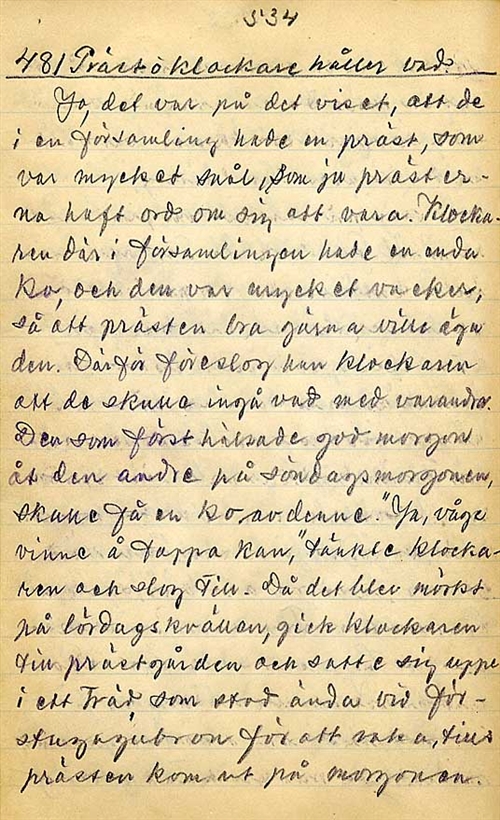 534
481 Präst o klockare håller vad.
Jo, det var på det viset, att de
i en församling hade en präst, som
var mycket snål, som ju präster-
na haft ord om sig att vara. Klocka-
ren där i församlingen hade en enda
ko, och den var mycket vacker,
så att prästen bra gärna ville äga
den. Därför föreslog han klockaren
att de skulle ingå vad med varandra.
Den som först hälsade god morgon
åt den andre på söndagsmorgonen,
skulle få en ko av denne. "Ja, våga
vinne å tappa kan," tänkte klocka-
ren och slog till. Då det blev mörkt
på lördagskvällen, gick klockaren
till prästgården och satte sig uppe
i ett träd som stod ända vid för-
stugugubron för att vaka, tills
prästen kom ut på morgonen.